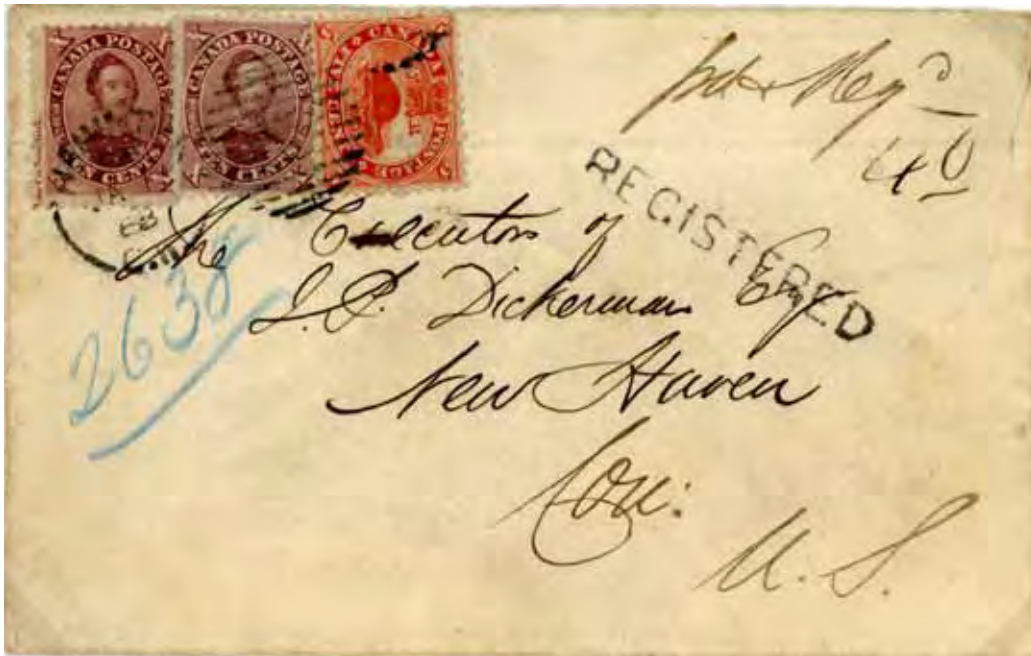 CANADA POSTAGE
TEN CENTS
CANADA POSTAGE
TEN CENTS
CANADA POSTAGE
JA
68
REGISTERED
2638
The Executors of
Dickerman Esq
New Haven
Con:
U. S.